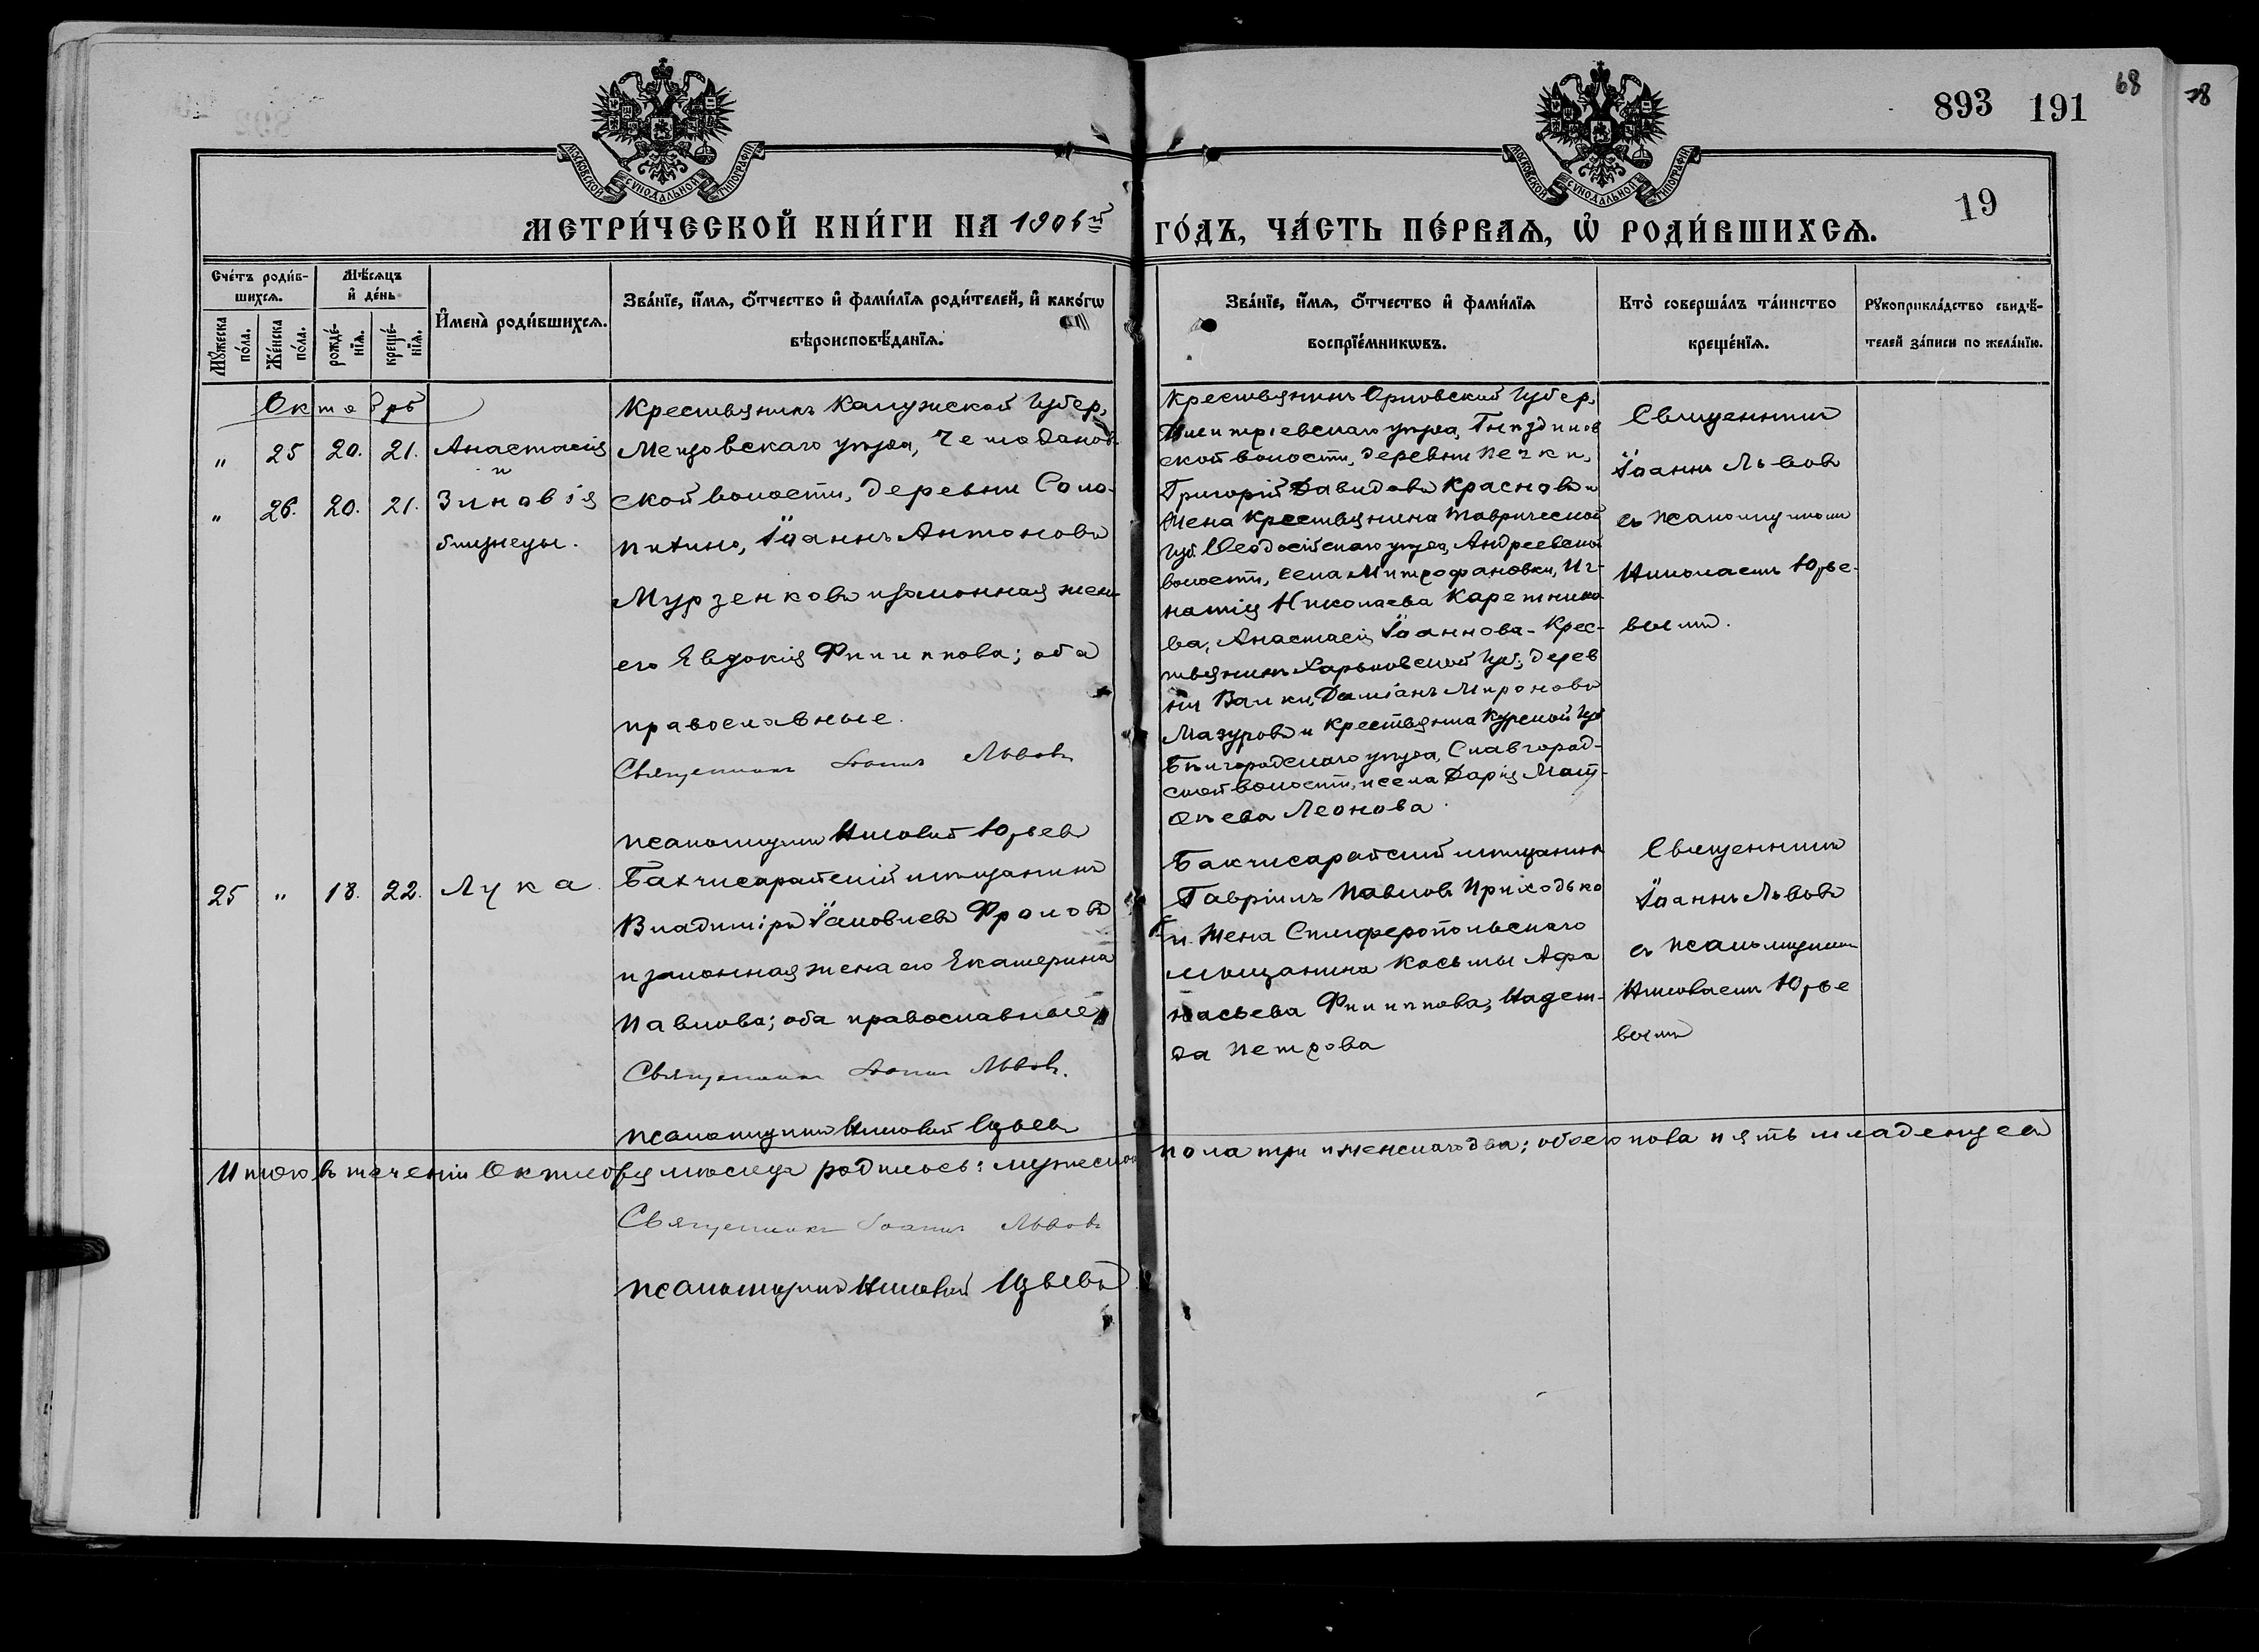 893 191
68
28
19
МОСКОВСКОЙ СѴНОДАЛЬНОЙ ТИПОГРАФІИ
МОСКОВСКОЙ СѴНОДАЛЬНОЙ ТИПОГРАФІИ
МЕТРИ́ЧЕСКОЙ КНИ́ГИ НА 1906й
ГО́ДЪ, ЧА́СТЬ ПЕ́РВАѦ, Ѡ РОДИ́ВШИХСѦ.
Сче́тъ роди́в-
шихсѧ.
Мꙋ́жеска
по́ла.
Же́нска
по́ла.
Мѣ́сѧцъ
и де́нь
рожде́-
нїѧ.
креще́-
нїѧ.
Имена̀ роди́вшихсѧ.
Зва́нїе, и́мѧ, ѻ́тчество и фами́лїѧ роди́телей, и како́гѡ
вѣроисповѣ́данїѧ.
Зва́нїе, и́мѧ, ѻ́тчество и фами́лїѧ
воспрїе́мникѡвъ.
Кто̀ соверша́лъ та́инство
креще́нїѧ.
Рꙋкоприкла́дство свидѣ́-
телей за́писи по жела́нїю.
Октябрь
" 25 20. 21. Анастасія
и
" 26. 20. 21. Зиновія
близнецы.
Крестьянинъ Калужской Губер.
Мещовскаго уѣзда, Чемоданов-
ской волости, деревни Соло-
пихино, Іоаннъ Антоновъ
Мурзенковъ и законная жена
его Евдокія Филиппова; оба
православные.
Священникъ Іоаннъ Львовъ
псаломщикъ Николай Юрьевъ
Крестьянинъ Орловской Губер.
Дмитріевскаго уѣзда, Гнѣздилов
ской волости, деревни Печки,
Григорій Давидовъ Красновъ и
жена крестьянина Таврической
Губ. Ѳеодосійскаго уѣзда, Андреевской
волости, села Митрофановки, Иг-
натія Николаева Каретнико
ва, Анастасія Іоаннова. Крес-
тьянинъ Харьковской Губ., дерев
ни Валки, Даміанъ Мироновъ
Мазуровъ и крестьянка Курской Губ
Бѣлгородскаго уѣзда, Славгород-
ской волости, и села Дарія Мат-
ѳѣева Леонова.
Священникъ
Іоаннъ Львовъ
съ псаломщикомъ
Николаемъ Юрье-
вымъ.
25 " 18. 22. Лука.
Бахчисарайскій мѣщанинъ
Владиміръ Іаковлевъ Фроловъ
и законная жена его Екатерина
Павлова; оба православные
Священникъ Іоаннъ Львовъ.
псаломщикъ Николай Юрьевъ
Бахчисарайскій мѣщанинъ
Гавріилъ Павловъ Приходько
и жена Симферопольскаго
мѣщанина Косьмы Афа
насьева Филиппова, Надеж-
да Петрова
Священникъ
Іоаннъ Львовъ
съ псаломщикомъ
Николаемъ Юрье
вымъ
Итого въ теченіи Октября мѣсяца родилось: мужескаго пола три и женскаго два; обоего пола пять младенцевъ
Священникъ Іоаннъ Львовъ
псаломщикъ Николай Юрьевъ